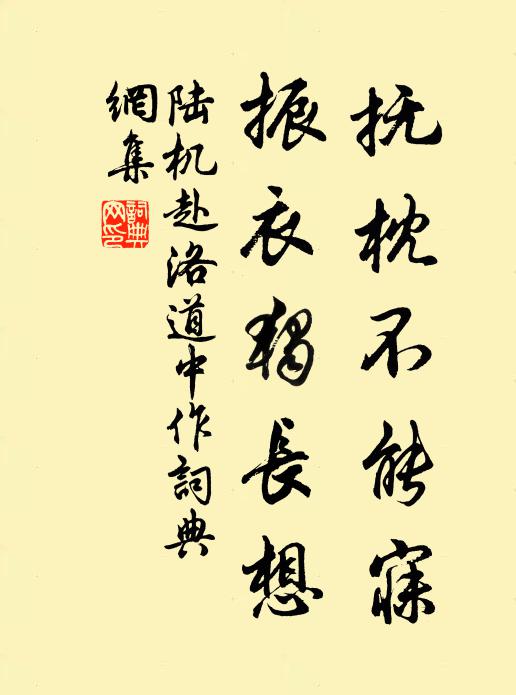 抚枕不能寐
振衣獨長想
陆机赴洛道中作詞典
網集
詞典
网印